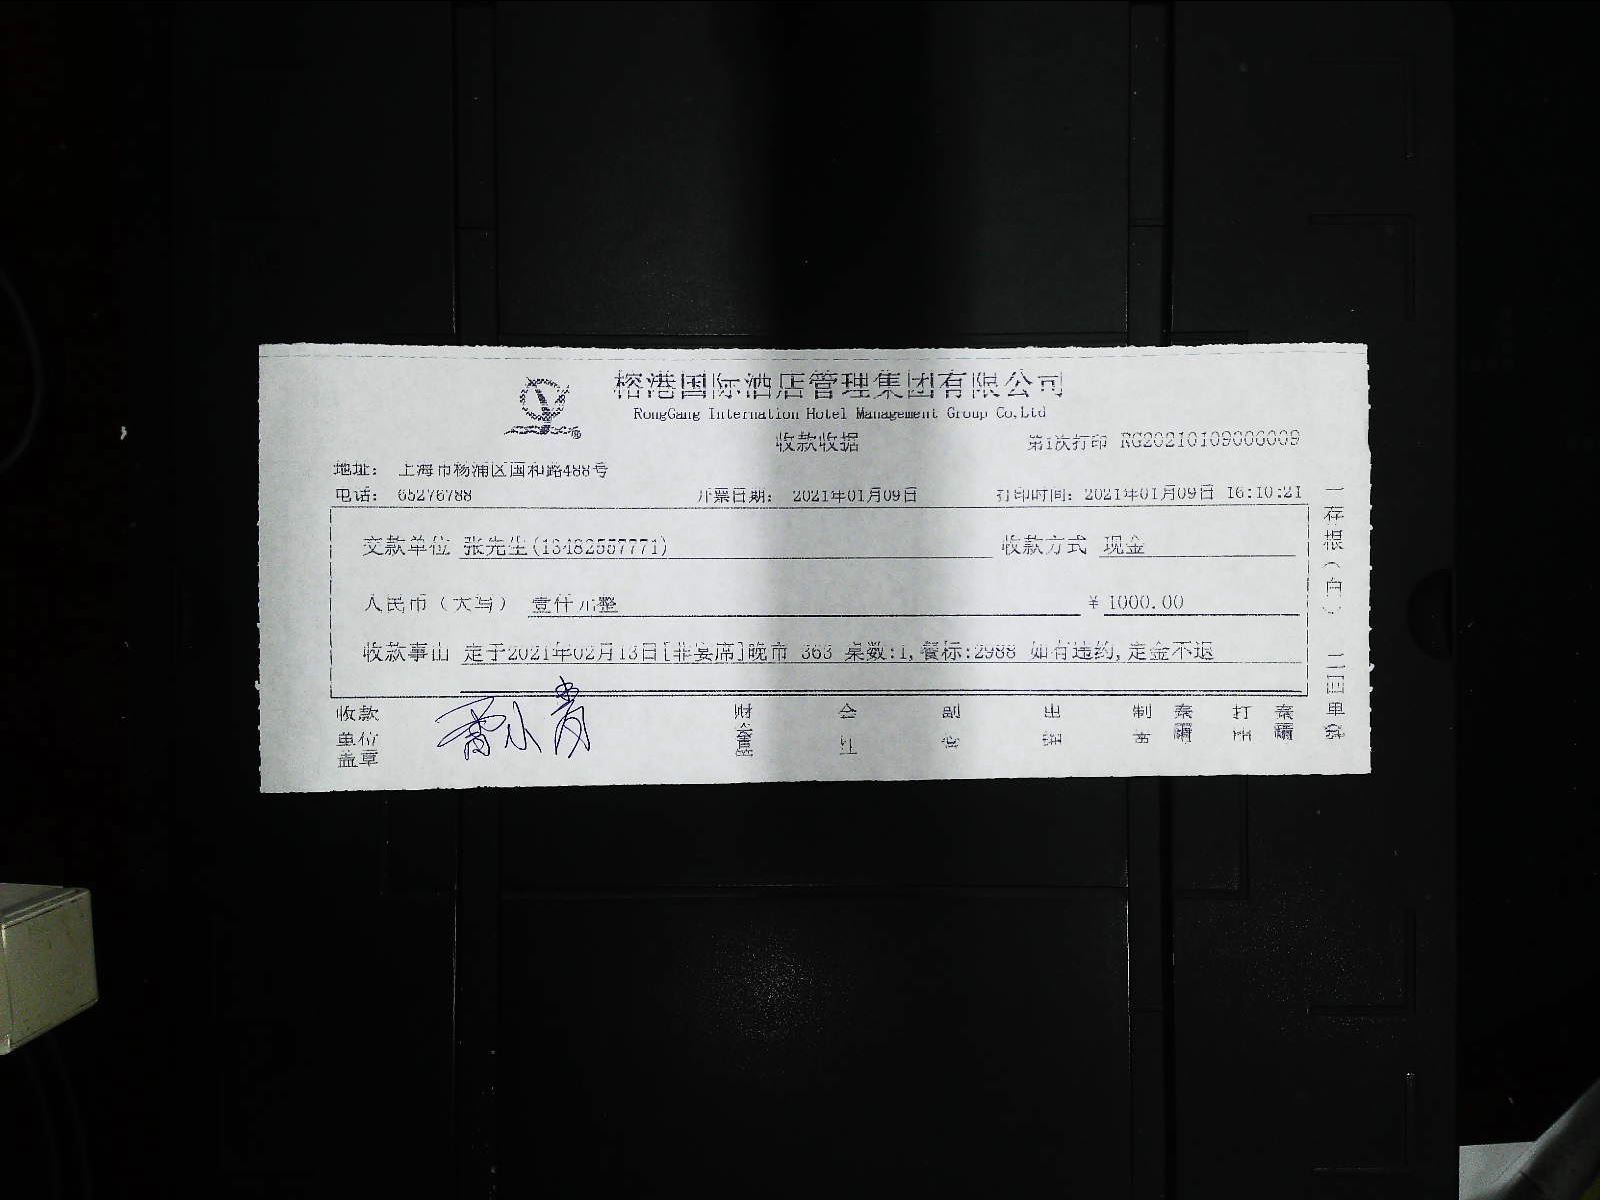 榕港国际酒店管理集团有限公司
RongGang Internation Hotel Management Group Co,Ltd
收款收据
第1次打印 RG20210109006009
地址： 上海市杨浦区国和路488号
电话： 65276788 开票日期： 2021年01月09日 打印时间：2021年01月09日 16:10:21
交款单位 张先生(13482557771) 收款方式 现金
人民币（大写） 壹仟元整 ¥ 1000.00
收款事由 定于2021年02月13日[非宴席]晚市 363 桌数:1,餐标:2988 如有违约,定金不退
收款
单位
盖章
财 会 副 出 制 秦 打 秦
存根（白）